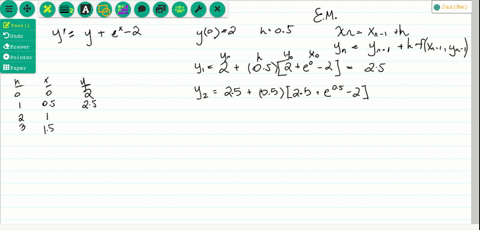 Pencil
Undo
Eraser
Pointer
Paper
E.M.
y' = y + e^x - 2    y(0) = 2    h = 0.5    x_n = x_{n-1} + h
y_n = y_{n-1} + h·f(x_{n-1}, y_{n-1})
y_n h y_0 x_0
y_1 = 2 + (0.5)[2 + e^0 - 2] = 2.5
n x y
0 0 2
1 0.5 2.5
2 1
3 1.5
y_2 = 2.5 + (0.5)[2.5 + e^{0.5} - 2]